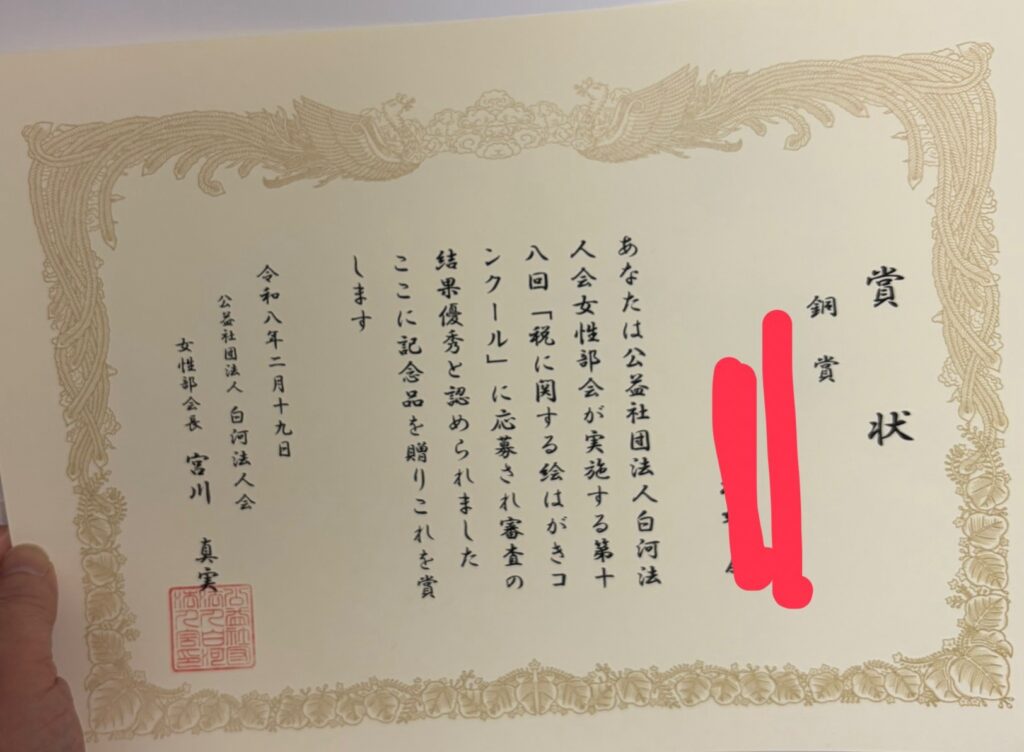 賞状
銅賞
あなたは公益社団法人白河法
人会女性部会が実施する第十
八回「税に関する絵はがきコ
ンクール」に応募され審査の
結果優秀と認められました
ここに記念品を贈りこれを賞
します
令和八年二月十九日
公益社団法人 白河法人会
女性部会長 宮川 真実